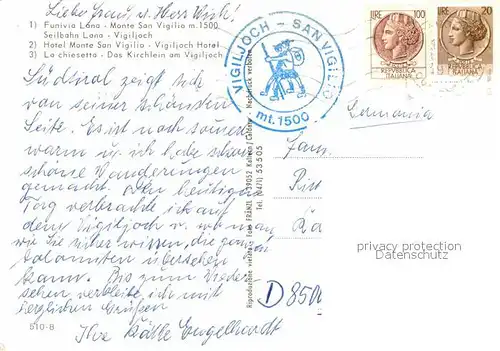 Liebe Frau u. Herr
1) Funivia Lana - Monte San Vigilio m. 1500
Seilbahn Lana - Vigiljoch
2) Hotel Monte San Vigilio - Vigiljoch Hotel
3) La chiesetta - Das Kirchlein am Vigiljoch
Südtirol zeigt sich
von seiner schönsten
Seite. Es ist noch sommer
warm u. ich habe schon
schöne Wanderungen
gemacht. Den heutigen
Tag verbrachte ich auf
dem Vigiljoch u. wo man
wie Sie sicher wissen, die ganzen
Dolomiten übersehen
kann. Bis zum Wieder-
sehen verbleibe ich mit
herzlichen Grüßen
Ihre Käthe Engelhardt
510-B
VIGILJOCH - SAN VIGILIO
mt. 1500
LIRE 100
REPUBBLICA
ITALIANA
LIRE 20
REPUBBLICA
ITALIANA
Germania
Fam.
D 8500
Riproduzione vietata - Foto FRÄNZL - 39052 Kaltern/Caldaro - Nachdruck verboten
Tel. (0471) 53505
privacy protection
Datenschutz